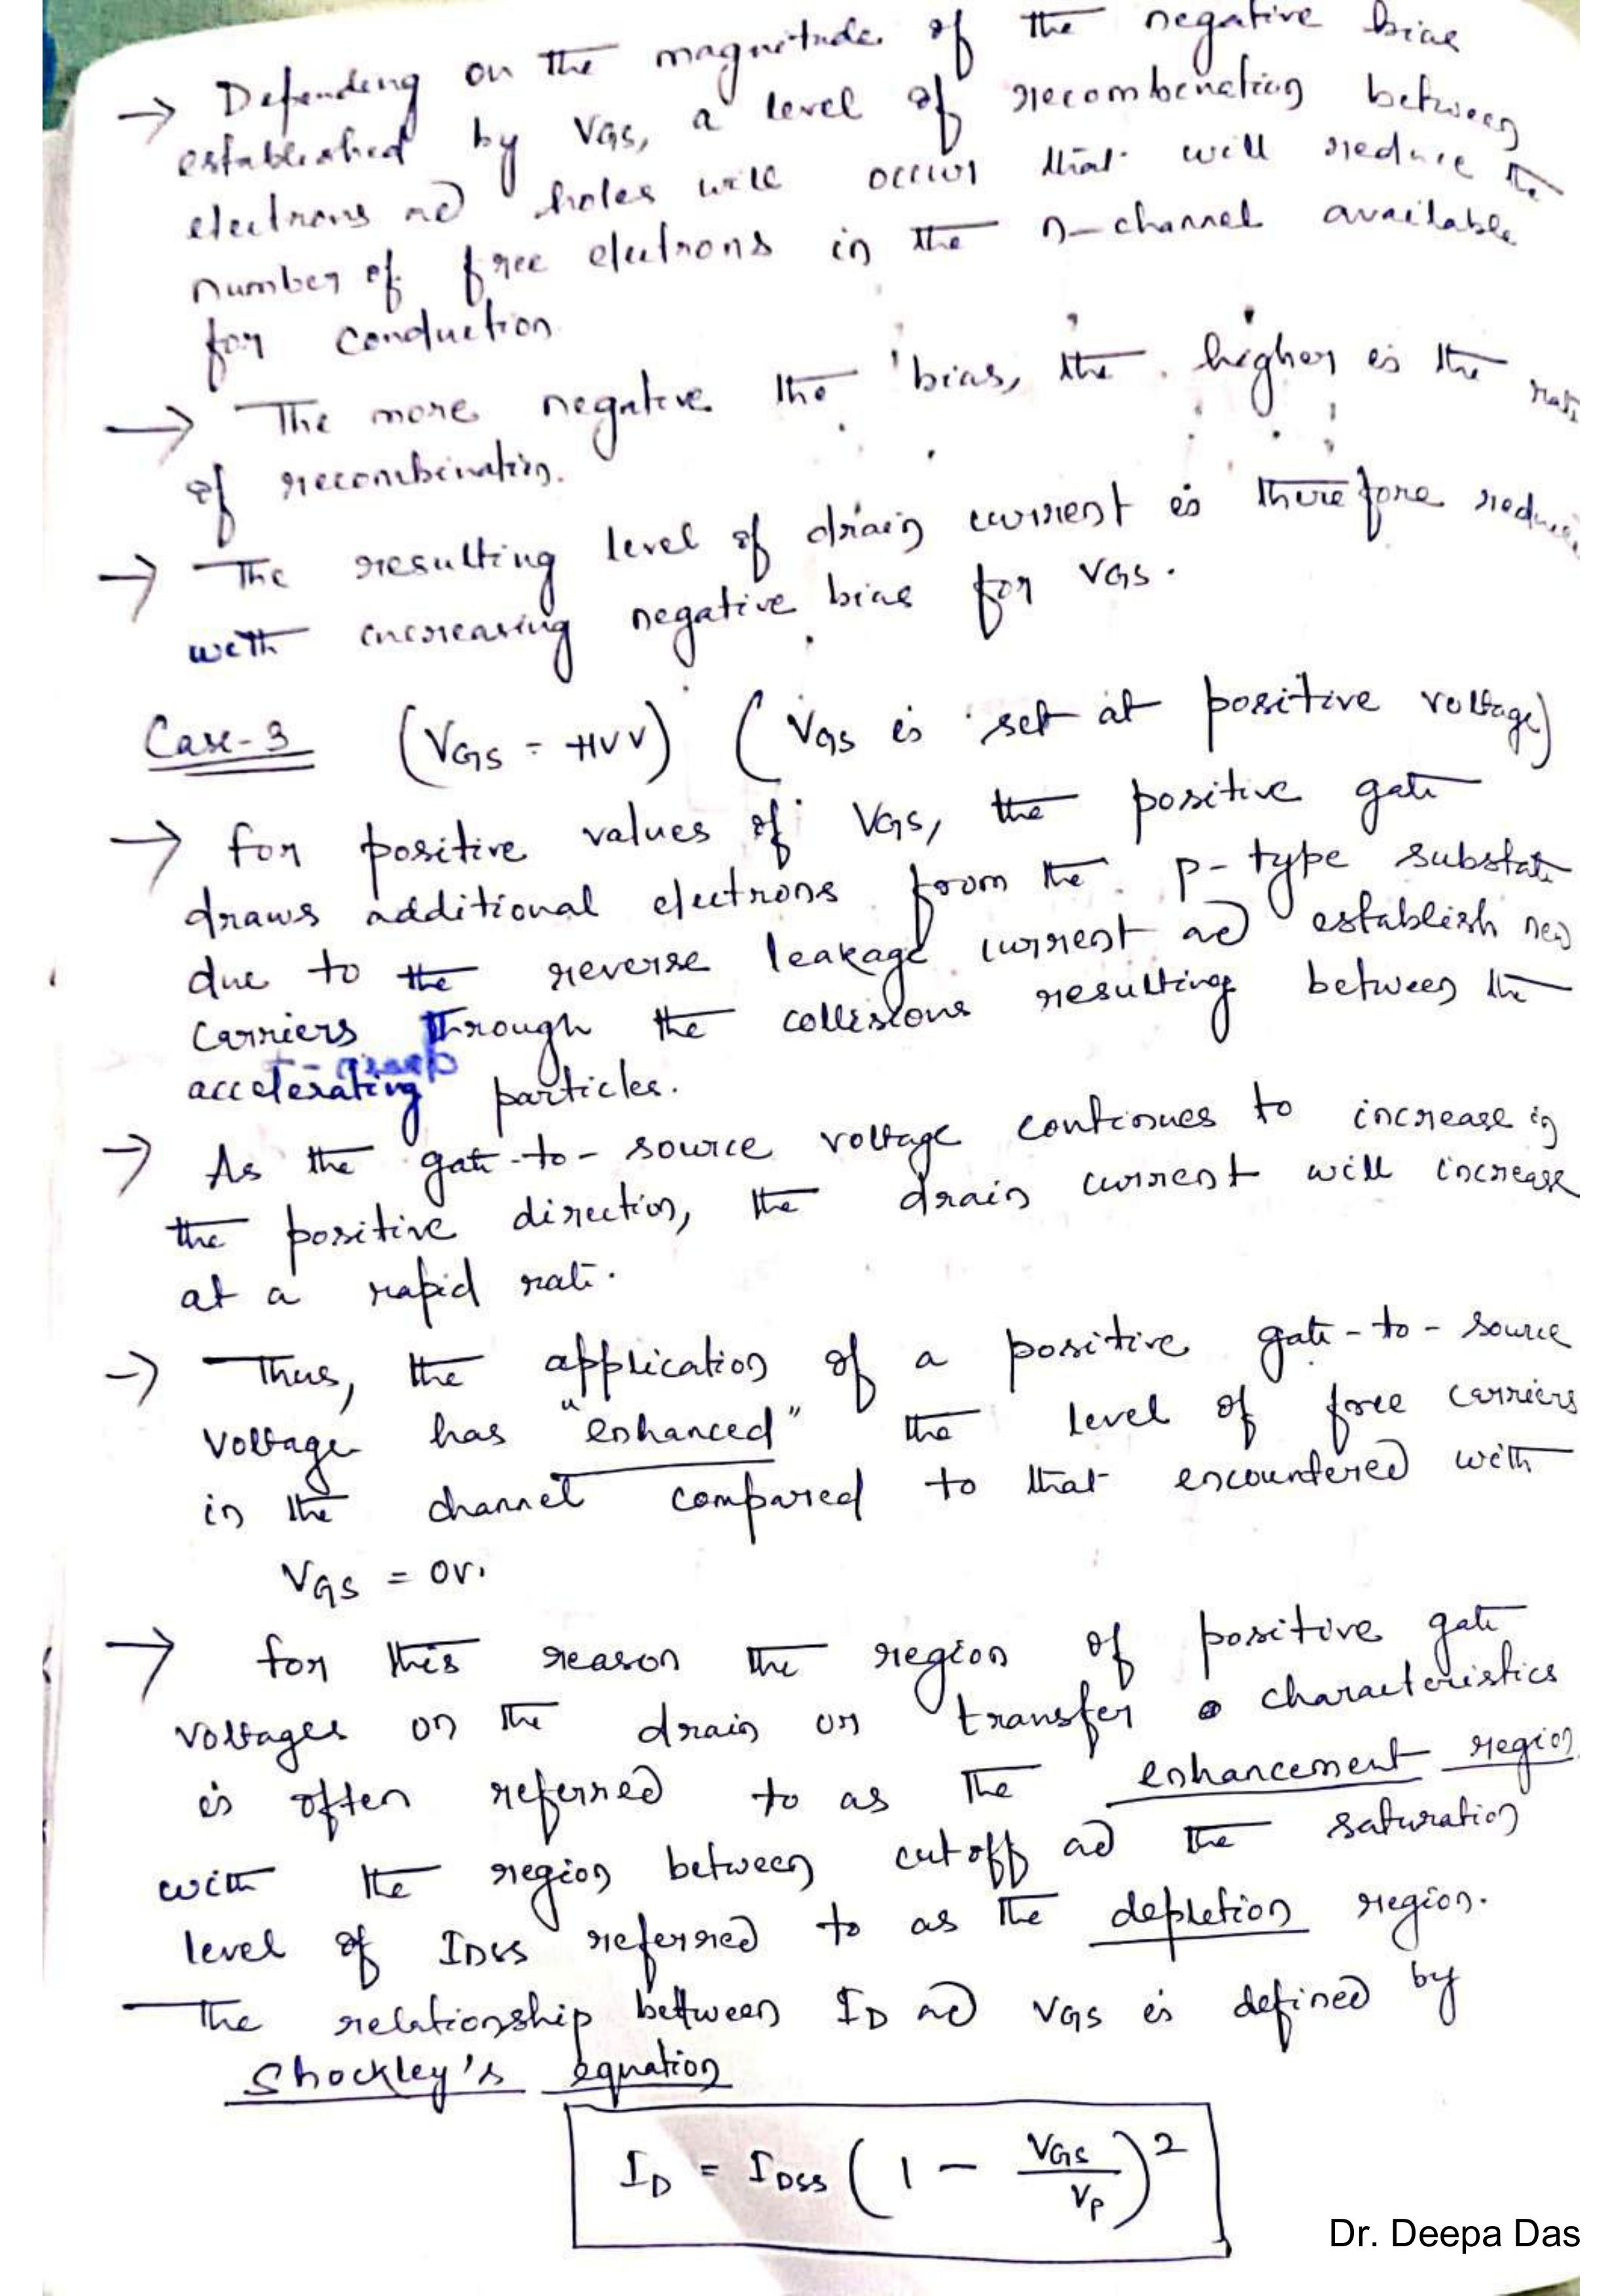 → Depending on the magnitude of the negative bias
established by VGS, a level of recombination between
electrons and holes will occur that will reduce the
number of free electrons in the n-channel available
for conduction
→ The more negative the bias, the higher is the rate
of recombination.
→ The resulting level of drain current is therefore reduced
with increasing negative bias for VGS.
Case-3 (VGS = +ve V) (VGS is set at positive voltage)
→ for positive values of VGS, the positive gate
draws additional electrons from the p-type substrate
due to the reverse leakage current and establish new
carriers through the collisions resulting between the
accelerating particles.
→ As the gate-to-source voltage continues to increase in
the positive direction, the drain current will increase
at a rapid rate.
→ Thus, the application of a positive gate-to-source
voltage has "enhanced" the level of free carriers
in the channel compared to that encountered with
VGS = 0V.
→ for this reason the region of positive gate
voltages on the drain or transfer characteristics
is often referred to as the enhancement region
with the region between cutoff and the saturation
level of IDSS referred to as the depletion region.
The relationship between ID and VGS is defined by
Shockley's equation
ID = IDSS (1 - VGS/VP)²
Dr. Deepa Das